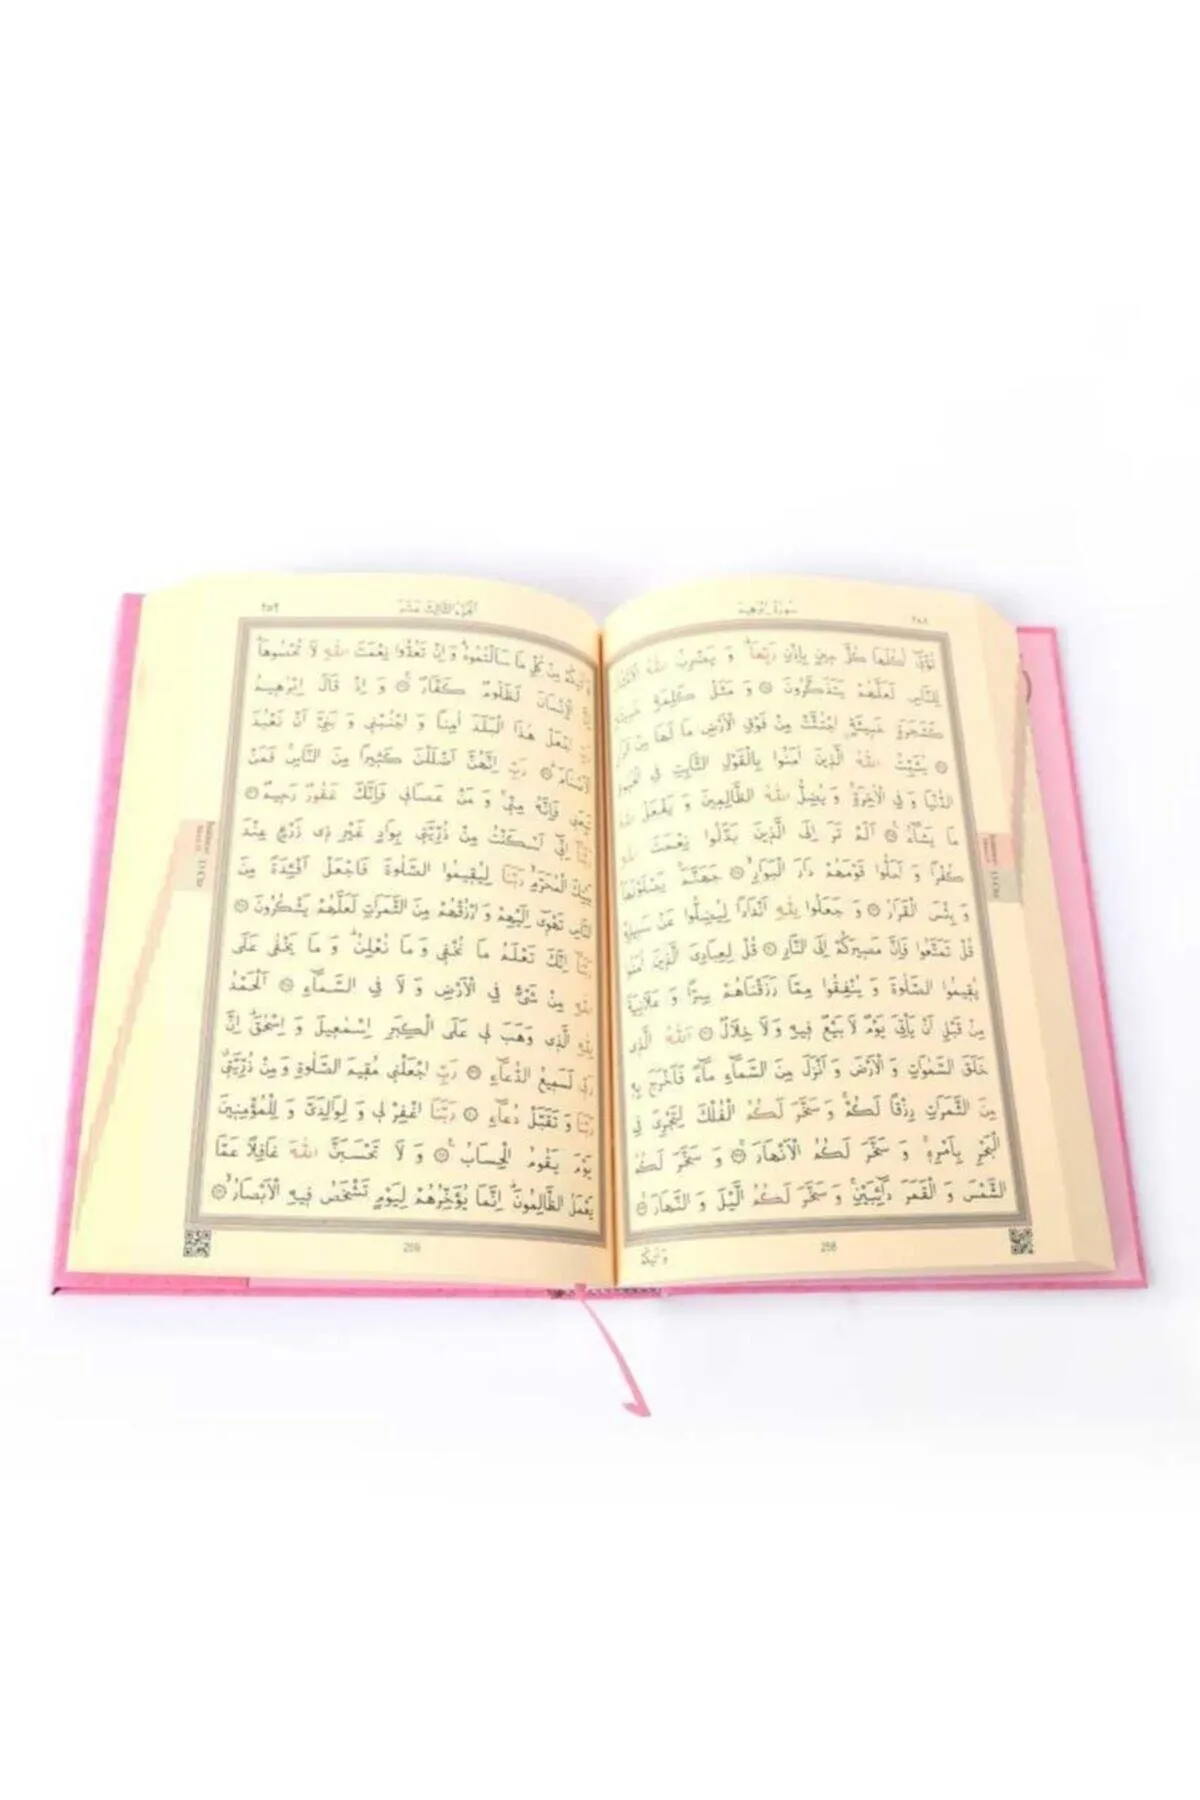 سُورَةُ اِبْرٰهِيمَ
٢٥٨
تُؤْتٖٓي اُكُلَهَا كُلَّ حٖينٍ بِاِذْنِ رَبِّهَاۜ وَ يَضْرِبُ اللّٰهُ الْاَمْثَالَ
لِلنَّاسِ لَعَلَّهُمْ يَتَذَكَّرُونَ ۞ وَ مَثَلُ كَلِمَةٍ خَبٖيثَةٍ
كَشَجَرَةٍ خَبٖيثَةٍۨ اجْتُثَّتْ مِنْ فَوْقِ الْاَرْضِ مَا لَهَا مِنْ قَرَارٍ
۞ يُثَبِّتُ اللّٰهُ الَّذٖينَ اٰمَنُوا بِالْقَوْلِ الثَّابِتِ فِي الْحَيٰوةِ
الدُّنْيَا وَ فِي الْاٰخِرَةِۚ وَ يُضِلُّ اللّٰهُ الظَّالِمٖينَ وَ يَفْعَلُ اللّٰهُ
مَا يَشَٓاءُ۟ ۞ اَلَمْ تَرَ اِلَى الَّذٖينَ بَدَّلُوا نِعْمَتَ اللّٰهِ
كُفْرًا وَ اَحَلُّوا قَوْمَهُمْ دَارَ الْبَوَارِۙ ۞ جَهَنَّمَۚ يَصْلَوْنَهَاۜ
وَ بِئْسَ الْقَرَارُ ۞ وَ جَعَلُوا لِلّٰهِ اَنْدَادًا لِيُضِلُّوا عَنْ سَبٖيلِهٖۜ
قُلْ تَمَتَّعُوا فَاِنَّ مَصٖيرَكُمْ اِلَى النَّارِ ۞ قُلْ لِعِبَادِيَ الَّذٖينَ اٰمَنُوا
يُقٖيمُوا الصَّلٰوةَ وَ يُنْفِقُوا مِمَّا رَزَقْنَاهُمْ سِرًّا وَ عَلَانِيَةً
مِنْ قَبْلِ اَنْ يَأْتِيَ يَوْمٌ لَا بَيْعٌ فٖيهِ وَ لَا خِلَالٌ ۞ اَللّٰهُ الَّذٖي
خَلَقَ السَّمٰوَاتِ وَ الْاَرْضَ وَ اَنْزَلَ مِنَ السَّمَٓاءِ مَٓاءً فَاَخْرَجَ بِهٖ
مِنَ الثَّمَرَاتِ رِزْقًا لَكُمْۚ وَ سَخَّرَ لَكُمُ الْفُلْكَ لِتَجْرِيَ فِي
الْبَحْرِ بِاَمْرِهٖۚ وَ سَخَّرَ لَكُمُ الْاَنْهَارَۚ ۞ وَ سَخَّرَ لَكُمُ
الشَّمْسَ وَ الْقَمَرَ دَٓائِبَيْنِۚ وَ سَخَّرَ لَكُمُ الَّيْلَ وَ النَّهَارَۚ ۞
258
وَ اٰتٰيكُمْ
اَلْجُزْءُ الثَّالِثَ عَشَرَ
٢٥٩
وَ اٰتٰيكُمْ مِنْ كُلِّ مَا سَاَلْتُمُوهُۜ وَ اِنْ تَعُدُّوا نِعْمَتَ اللّٰهِ لَا تُحْصُوهَاۜ
اِنَّ الْاِنْسَانَ لَظَلُومٌ كَفَّارٌ۟ ۞ وَ اِذْ قَالَ اِبْرٰهٖيمُ
رَبِّ اجْعَلْ هٰذَا الْبَلَدَ اٰمِنًا وَ اجْنُبْنٖي وَ بَنِيَّ اَنْ نَعْبُدَ
الْاَصْنَامَۜ ۞ رَبِّ اِنَّهُنَّ اَضْلَلْنَ كَثٖيرًا مِنَ النَّاسِۚ فَمَنْ
تَبِعَنٖي فَاِنَّهُ مِنّٖيۚ وَ مَنْ عَصَانٖي فَاِنَّكَ غَفُورٌ رَحٖيمٌ ۞
رَبَّنَٓا اِنّٖٓي اَسْكَنْتُ مِنْ ذُرِّيَّتٖي بِوَادٍ غَيْرِ ذٖي زَرْعٍ عِنْدَ
بَيْتِكَ الْمُحَرَّمِۙ رَبَّنَا لِيُقٖيمُوا الصَّلٰوةَ فَاجْعَلْ اَفْئِدَةً مِنَ
النَّاسِ تَهْوٖٓي اِلَيْهِمْ وَ ارْزُقْهُمْ مِنَ الثَّمَرَاتِ لَعَلَّهُمْ يَشْكُرُونَ ۞
رَبَّنَٓا اِنَّكَ تَعْلَمُ مَا نُخْفٖي وَ مَا نُعْلِنُۜ وَ مَا يَخْفٰى عَلَى
اللّٰهِ مِنْ شَيْءٍ فِي الْاَرْضِ وَ لَا فِي السَّمَٓاءِ ۞ اَلْحَمْدُ
لِلّٰهِ الَّذٖي وَهَبَ لٖي عَلَى الْكِبَرِ اِسْمٰعٖيلَ وَ اِسْحٰقَۜ اِنَّ
رَبّٖي لَسَمٖيعُ الدُّعَٓاءِ ۞ رَبِّ اجْعَلْنٖي مُقٖيمَ الصَّلٰوةِ وَ مِنْ ذُرِّيَّتٖيۗ
رَبَّنَا وَ تَقَبَّلْ دُعَٓاءِ ۞ رَبَّنَا اغْفِرْ لٖي وَ لِوَالِدَيَّ وَ لِلْمُؤْمِنٖينَ
يَوْمَ يَقُومُ الْحِسَابُ۟ ۞ وَ لَا تَحْسَبَنَّ اللّٰهَ غَافِلًا عَمَّا
يَعْمَلُ الظَّالِمُونَۜ اِنَّمَا يُؤَخِّرُهُمْ لِيَوْمٍ تَشْخَصُ فٖيهِ الْاَبْصَارُۙ ۞
259